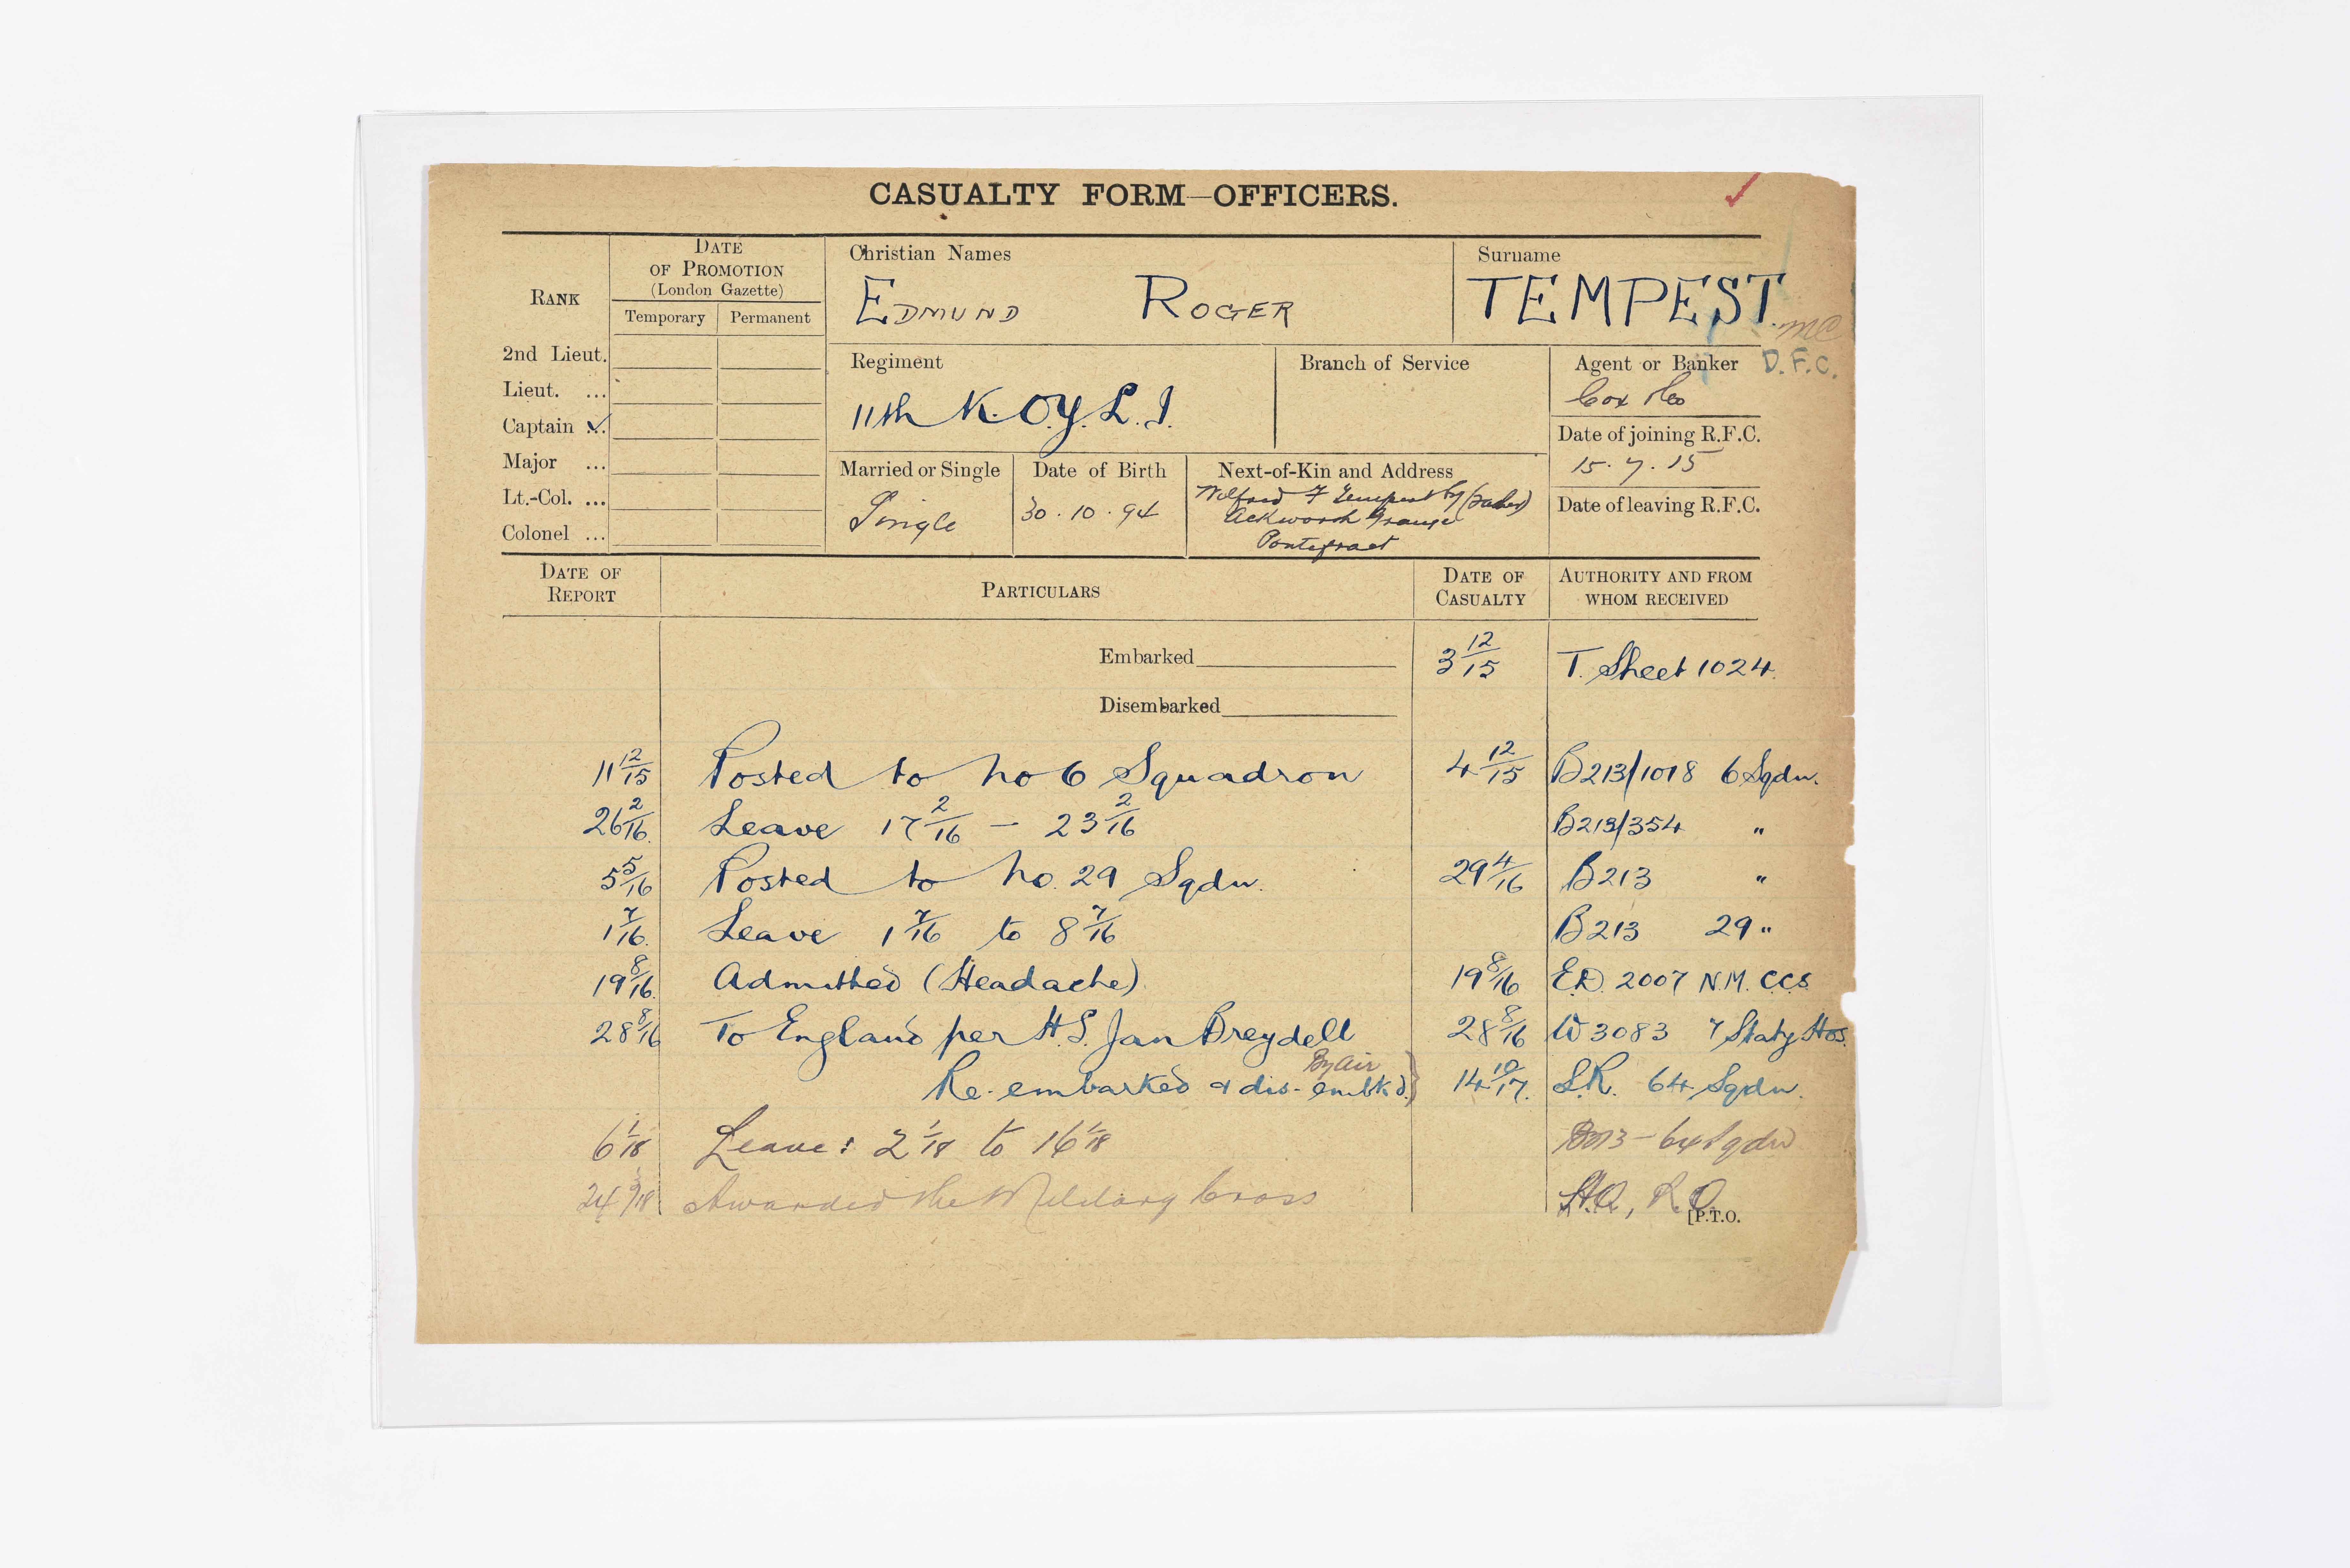 CASUALTY FORM—OFFICERS.
RANK
DATE OF PROMOTION (London Gazette)
Temporary
Permanent
2nd Lieut.
Lieut. ...
Captain ✓.
Major ...
Lt.-Col. ...
Colonel ...
Christian Names
EDMUND ROGER
Surname
TEMPEST. MC
D.F.C.
Regiment
11th K.O.Y.L.I.
Branch of Service
Agent or Banker
Cox & Co
Date of joining R.F.C.
15.7.15
Date of leaving R.F.C.
Married or Single
Single
Date of Birth
30.10.94
Next-of-Kin and Address
Wilfrid F Tempest Esq (Father)
Ackworth Grange
Pontefract
DATE OF REPORT
PARTICULARS
DATE OF CASUALTY
AUTHORITY AND FROM WHOM RECEIVED
Embarked 3 12/15 T. Sheet 1024.
Disembarked
11 12/15 Posted to No 6 Squadron 4 12/15 B213/1018 6 Sqdn.
26 2/16. Leave 17 2/16 — 23 2/16 B213/354 "
5 5/16 Posted to No. 29 Sqdn. 29 4/16 B213 "
1 7/16. Leave 1 7/16 to 8 7/16 B213 29 "
19 8/16. Admitted (Headache) 19 8/16 E.D. 2007 N.M. CCS
28 8/16 To England per H.S. Jan Breydell 28 8/16 W3083 7 Staty Hos.
By Air
Re-embarked & dis-embkd.} 14 10/17. S.R. 64 Sqdn.
6 1/18 Leave: 2 1/18 to 16 1/18 B213 - 64 Sqdn
24 3/18 Awarded the Military Cross H.Q., R.O.
[P.T.O.